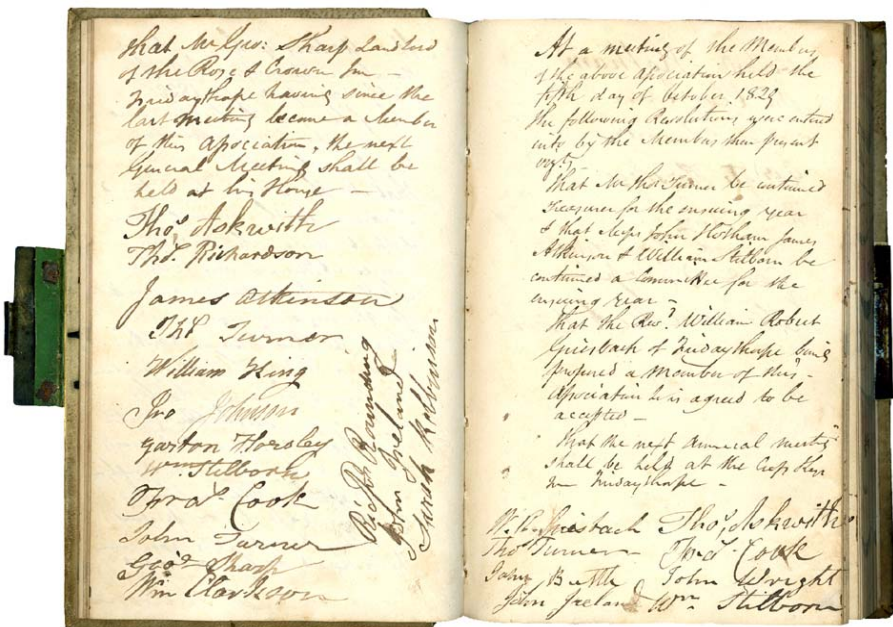 that Mr Geo: Sharp Landlord
of the Rose & Crown Inn –
Fridaythorpe having since the
last meeting become a Member
of this Association, the next
General Meeting shall be
held at his House –
Thos Askwith
Thos. Richardson
James Atkinson
Thos Turner
William King
Jno Johnson
Garton Horsley
Wm Stilborn
Fras Cook
John Turner
Geo Sharp
Wm Clarkson
Richd Rounding
John Ireland
Sarah
At a meeting of the Members
of the above Association held the
fifth day of October 1829
the following Resolutions were entered
into by the Members then present
That Mr Thos Turner be continued
Treasurer for the ensuing year
& that Messrs John Horsham James
Atkinson & William Stilborn be
continued a Committee for the
ensuing Year –
That the Revd. William Robert
Griesbach of Fridaythorpe being
proposed a Member of this
Association he is agreed to be
accepted –
That the next Annual meeting
shall be held at the Cross Keys
Inn Fridaythorpe –
W. R. Griesbach Thos, Askwith
Thos Turner Fras. Cook
John Buttle John Wright
John Ireland Wm Stilborn